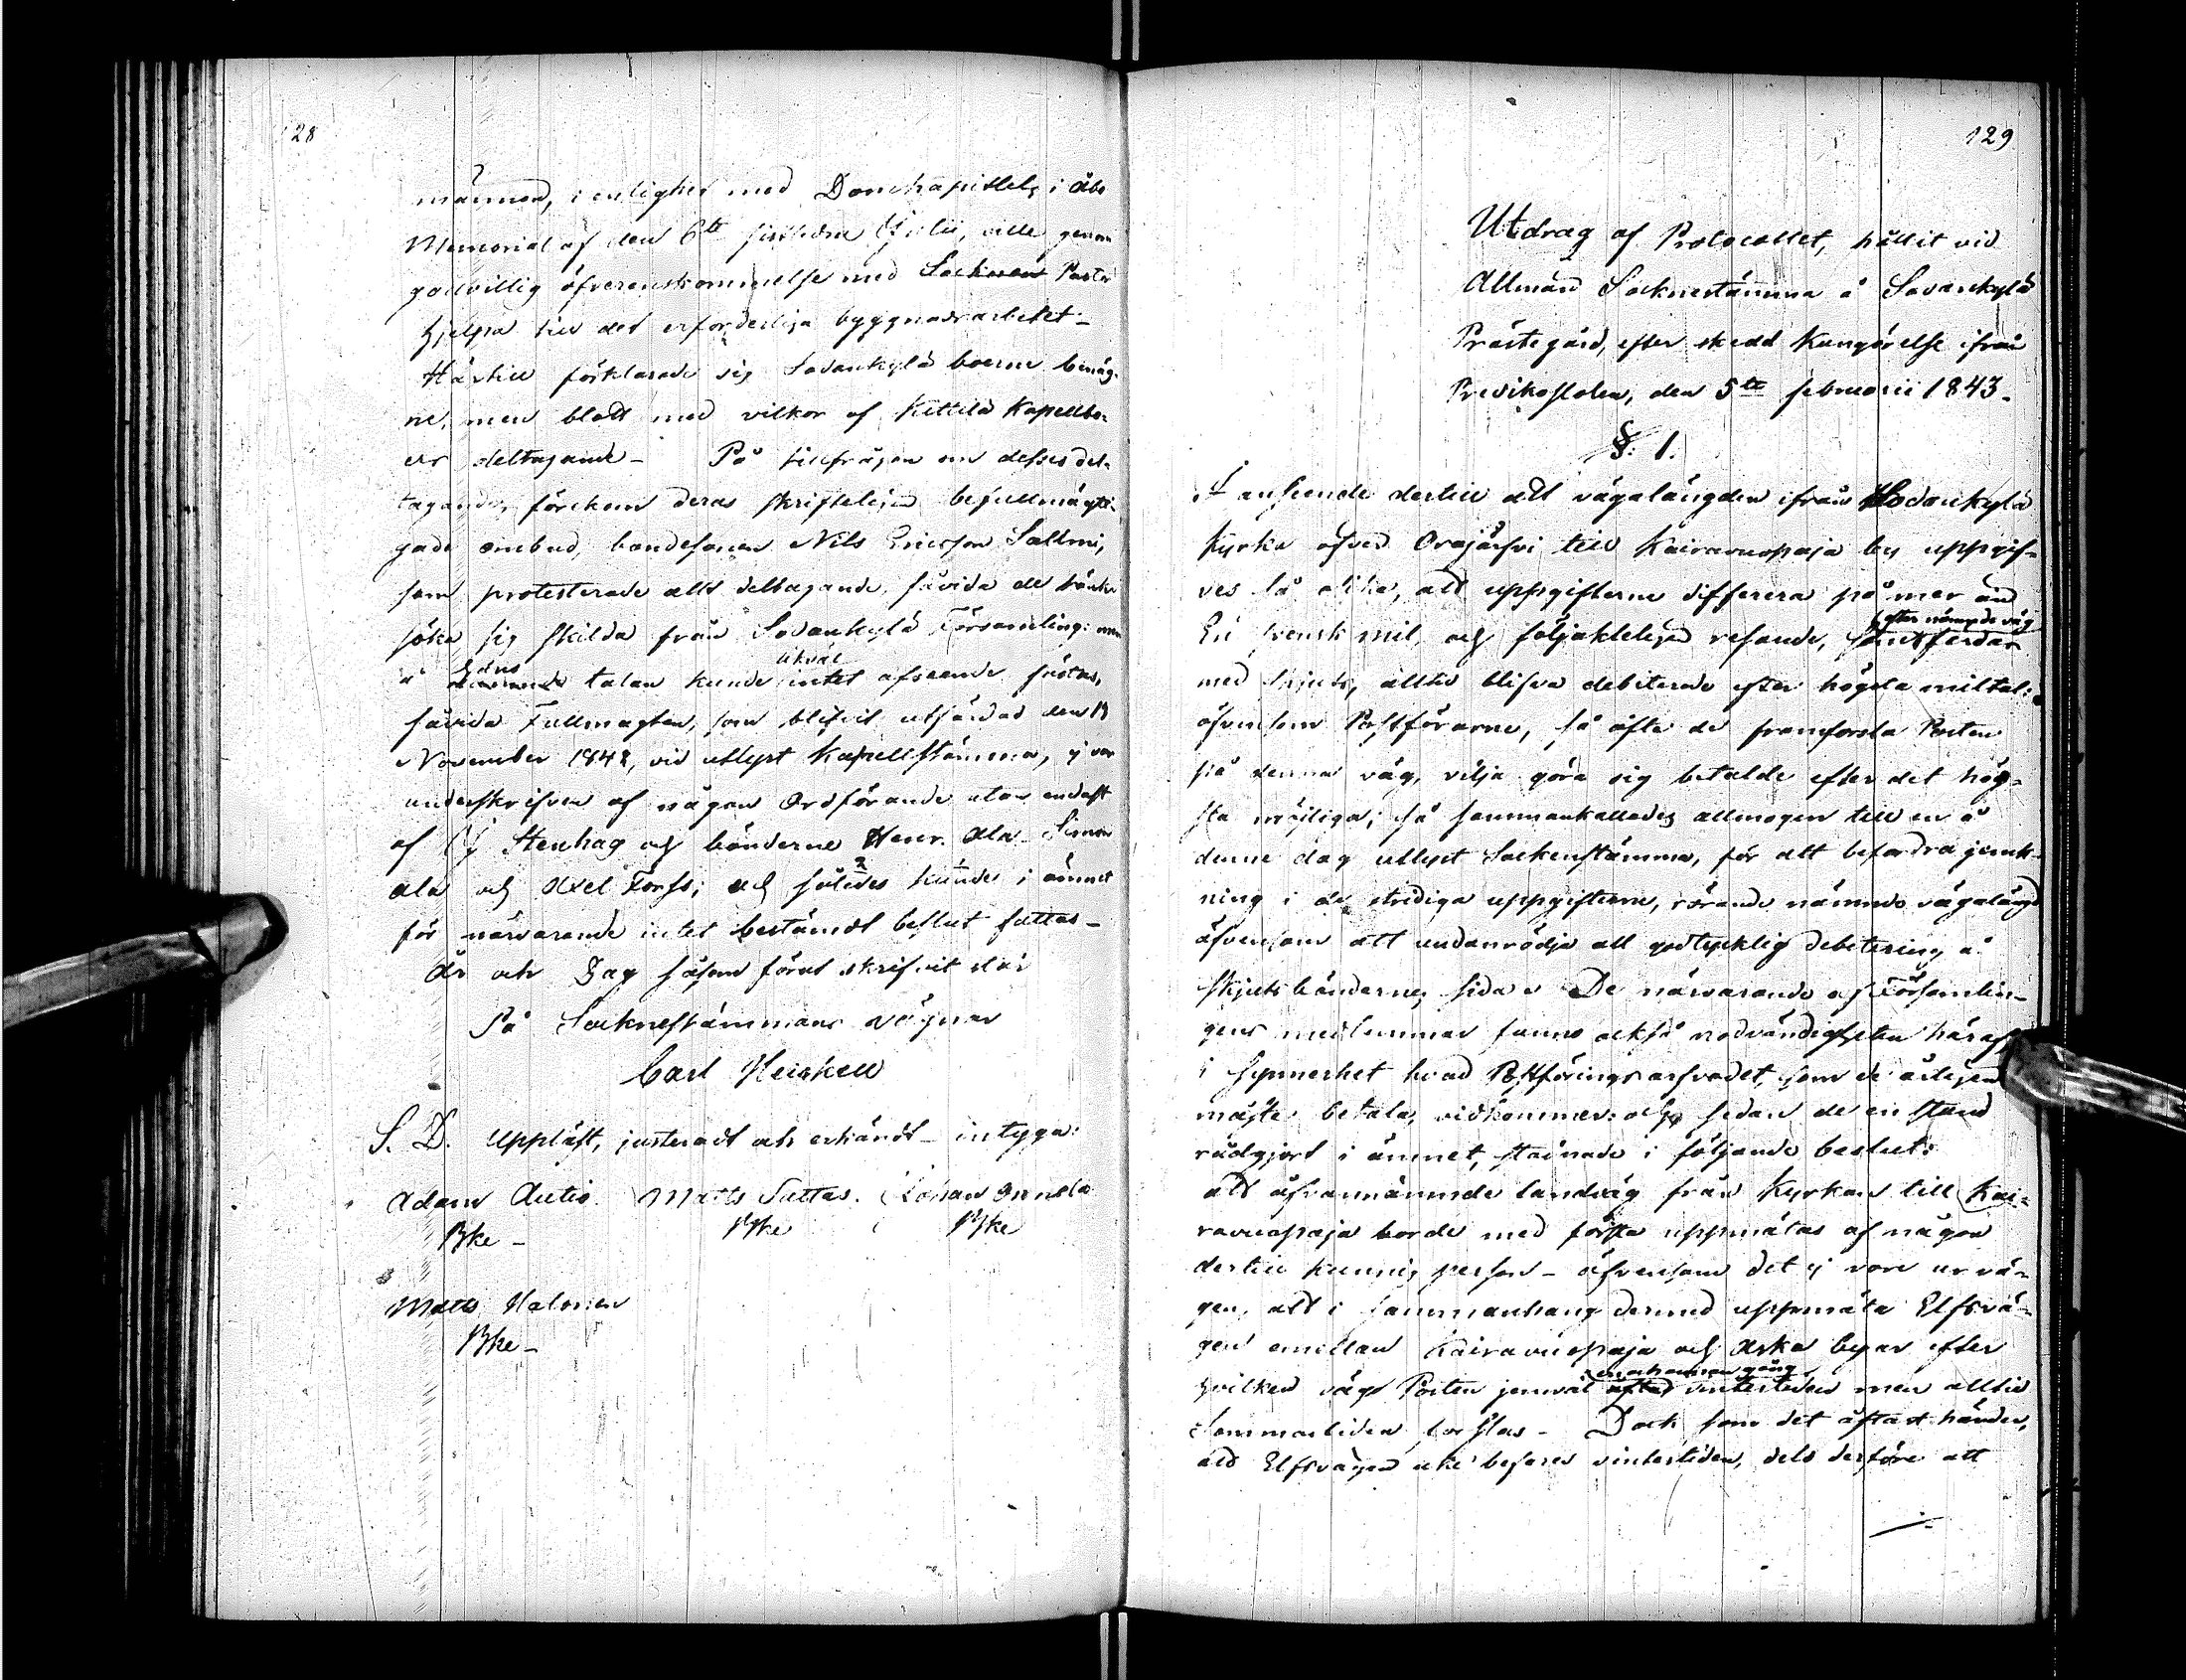 128
männen, i enlighet med Domkapitlets i Åbo
Memorial af den 6te sistledne Julii, ville genom
godvillig öfverenskommelse med Socknens Pastor
hjelpa till det erforderliga byggnadsarbetet_
Härtill förklarade sig Sodankylä boerne benäg-
ne, men blott med vilkor af Kittilä Kapellbo-
ers deltagande_ På tillfrågan om dessas del-
tagande, förekom deras skrifteligen befullmägti-
gade ombud, bondesonen Nils Ericsson Sallmi,
som protesterade allt deltagande, såvida de tänka
söka sig skilda från Sodankylä Församling: men
å hans talan kunde likväl intet afseende fästas,
såvida Fullmagten, som blifvit utfärdad den 13
November 1842, vid utlyst Kapellstämma, ej var
underskrifven af någon Ordförande utan endast
af Stenhag och bönderne Henr. Ala Simon
Ala och Axel Forss; och således kunde i ämnet
för närvarande intet bestämdt beslut fattas_
År och Dag såsom förut skrifvit står
På Socknestämmans vägnar
Carl Heickell
S. D. Uppläst, justeradt och erkändt_ intyga:
Adam Autio. Matts Sattas. Johan Onnela
Matts Halonen
129
Utdrag af Protocollet, hållit vid
Allmän Socknestämma å Sodankylä
Prästegård, efter skedd Kungörelse ifrån
Predikostolen, den 5te februarii 1843_
§. 1.
I anseende dertill att vägalängden ifrån Sodankylä
Kyrka öfver Orajärfvi till Kairavuopaja by uppgif-
ves så olika, att uppgifterne differera på mer än
En svensk mil, och följakteligen resande, som efter nämnde väg färdas
med skjuts, alltid blifva debiterade efter högsta miltal:
äfvensom Postförarne, så ofta de framforsla Posten
på denna väg, vilja göra sig betalde efter det hög-
sta möjliga; så sammankallades allmogen till en å
denne dag utlyst Sockenstämma, för att befordra jemk-
ning i de stridiga uppgifterna, rörande nämnde vägalängd
äfvensom att undanrödja all godtycklig debitering å
skjutsböndernes sida. De närvarande af Församlin-
gens medlemmar funno ock så nödvändigheten häraf
i synnerhet hvad Postföringsarfvodet, som de årligen
måste betala, vidkommer: och sedan de en stund
rådgjort i ämnet, stadnade i följande beslut:
att äfvannämnde landsväg från Kyrkan till Kai-
ravuopaja borde med första uppmätas af någon
dertill kunnig person_ äfvensom det ej vore ur vä-
gen, att i sammanhang dermed uppmäta Elfsvä-
gen emellan Kairavuopaja och Aska byar efter
hvilken väg Posten jemväl en och annan gång vintertiden men alltid
Sommartiden forslas_ Dock som det oftast händer,
att Elfsvägen icke befares vintertiden, dels derföre att